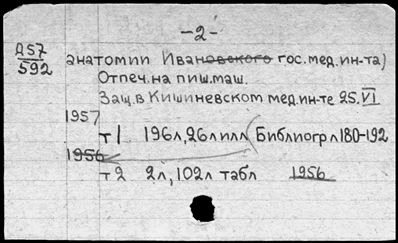 -2-
Д57
592
анатомии Ивановского гос. мед. ин-та)
Отпеч. на пиш. маш.
Защ. в Кишиневском мед. ин-те 25.VI
1957
т1 196л, 26л илл (Библиогр л180-192
1956
т2 2л, 102л табл 1956